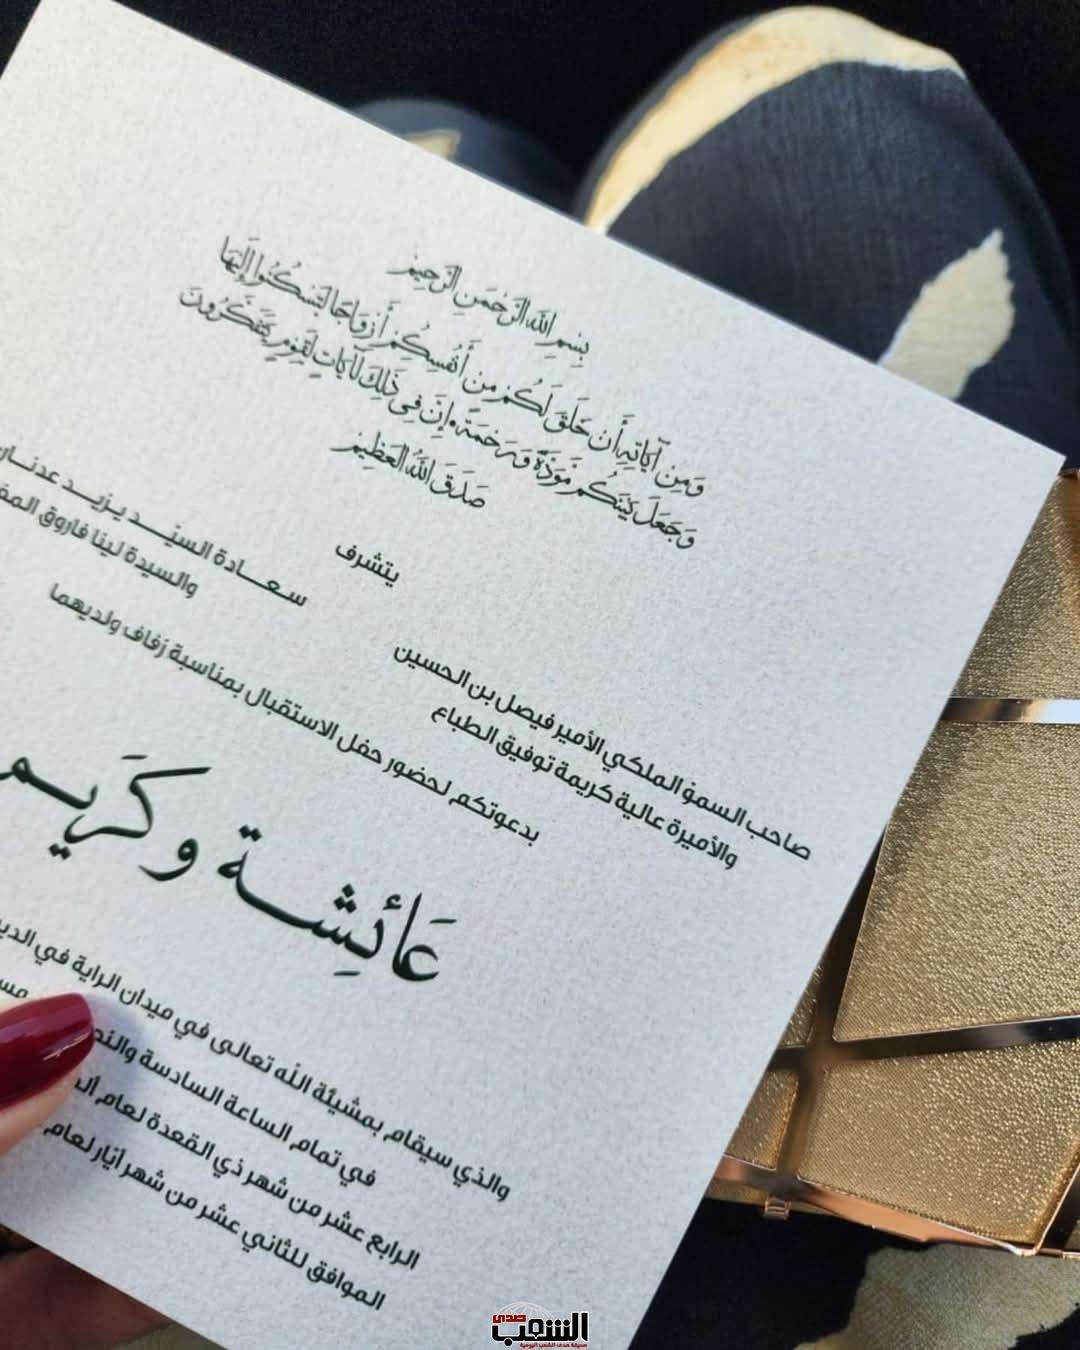 بِسْمِ اللهِ الرَّحْمَنِ الرَّحِيمِ
وَمِنْ آيَاتِهِ أَنْ خَلَقَ لَكُمْ مِنْ أَنْفُسِكُمْ أَزْوَاجًا لِتَسْكُنُوا إِلَيْهَا
وَجَعَلَ بَيْنَكُمْ مَوَدَّةً وَرَحْمَةً إِنَّ فِي ذَلِكَ لَآيَاتٍ لِقَوْمٍ يَتَفَكَّرُونَ
صَدَقَ اللهُ العَظِيمُ
يتشرف
صاحب السمو الملكي الأمير فيصل بن الحسين
والأميرة عالية كريمة توفيق الطباع
سعادة السيّد يزيد عدنان
والسيدة لينا فاروق
بدعوتكم لحضور حفل الاستقبال بمناسبة زفاف ولديهما
عَائِشة وكَريم
والذي سيقام بمشيئة الله تعالى في ميدان الراية في
في تمام الساعة السادسة
الرابع عشر من شهر ذي القعدة لعام
الموافق للثاني عشر من شهر أيّار لعام
صدى
الشعب
صحيفة صدى الشعب اليومية